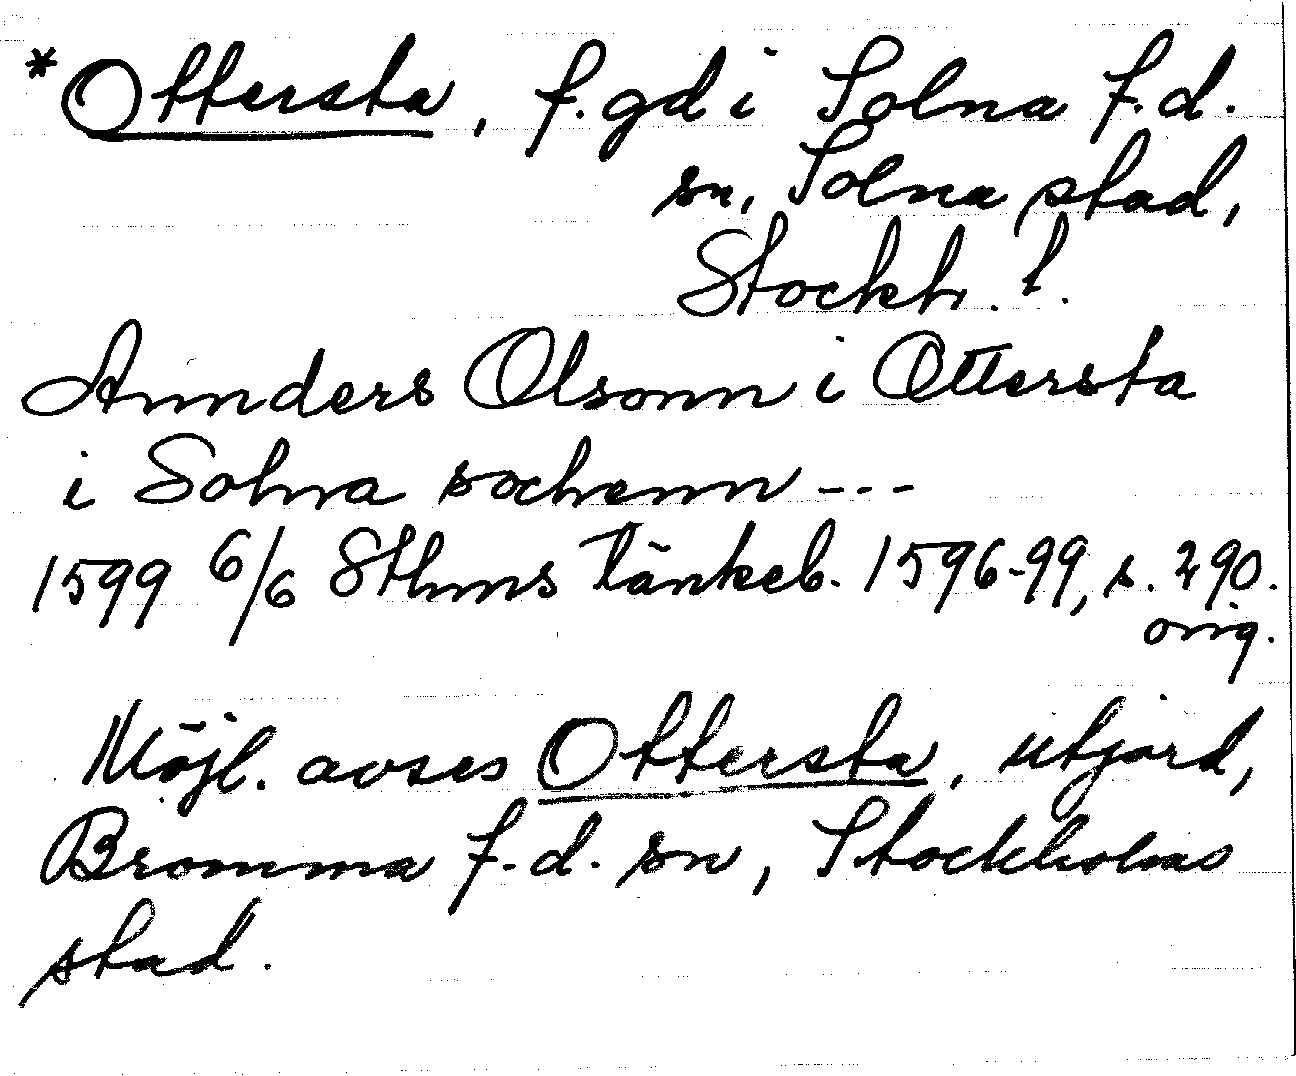 *Ottersta, f. gd i Solna f.d.
sn, Solna stad,
Stockh. l.
Annders Olsonn i Ottersta
i Solna sochenn ---
1599 6/6 Sthms tänkeb. 1596-99, s. 290.
orig.
Möjl. avses Ottersta, utjord,
Bromma f.d. sn, Stockholms
stad.